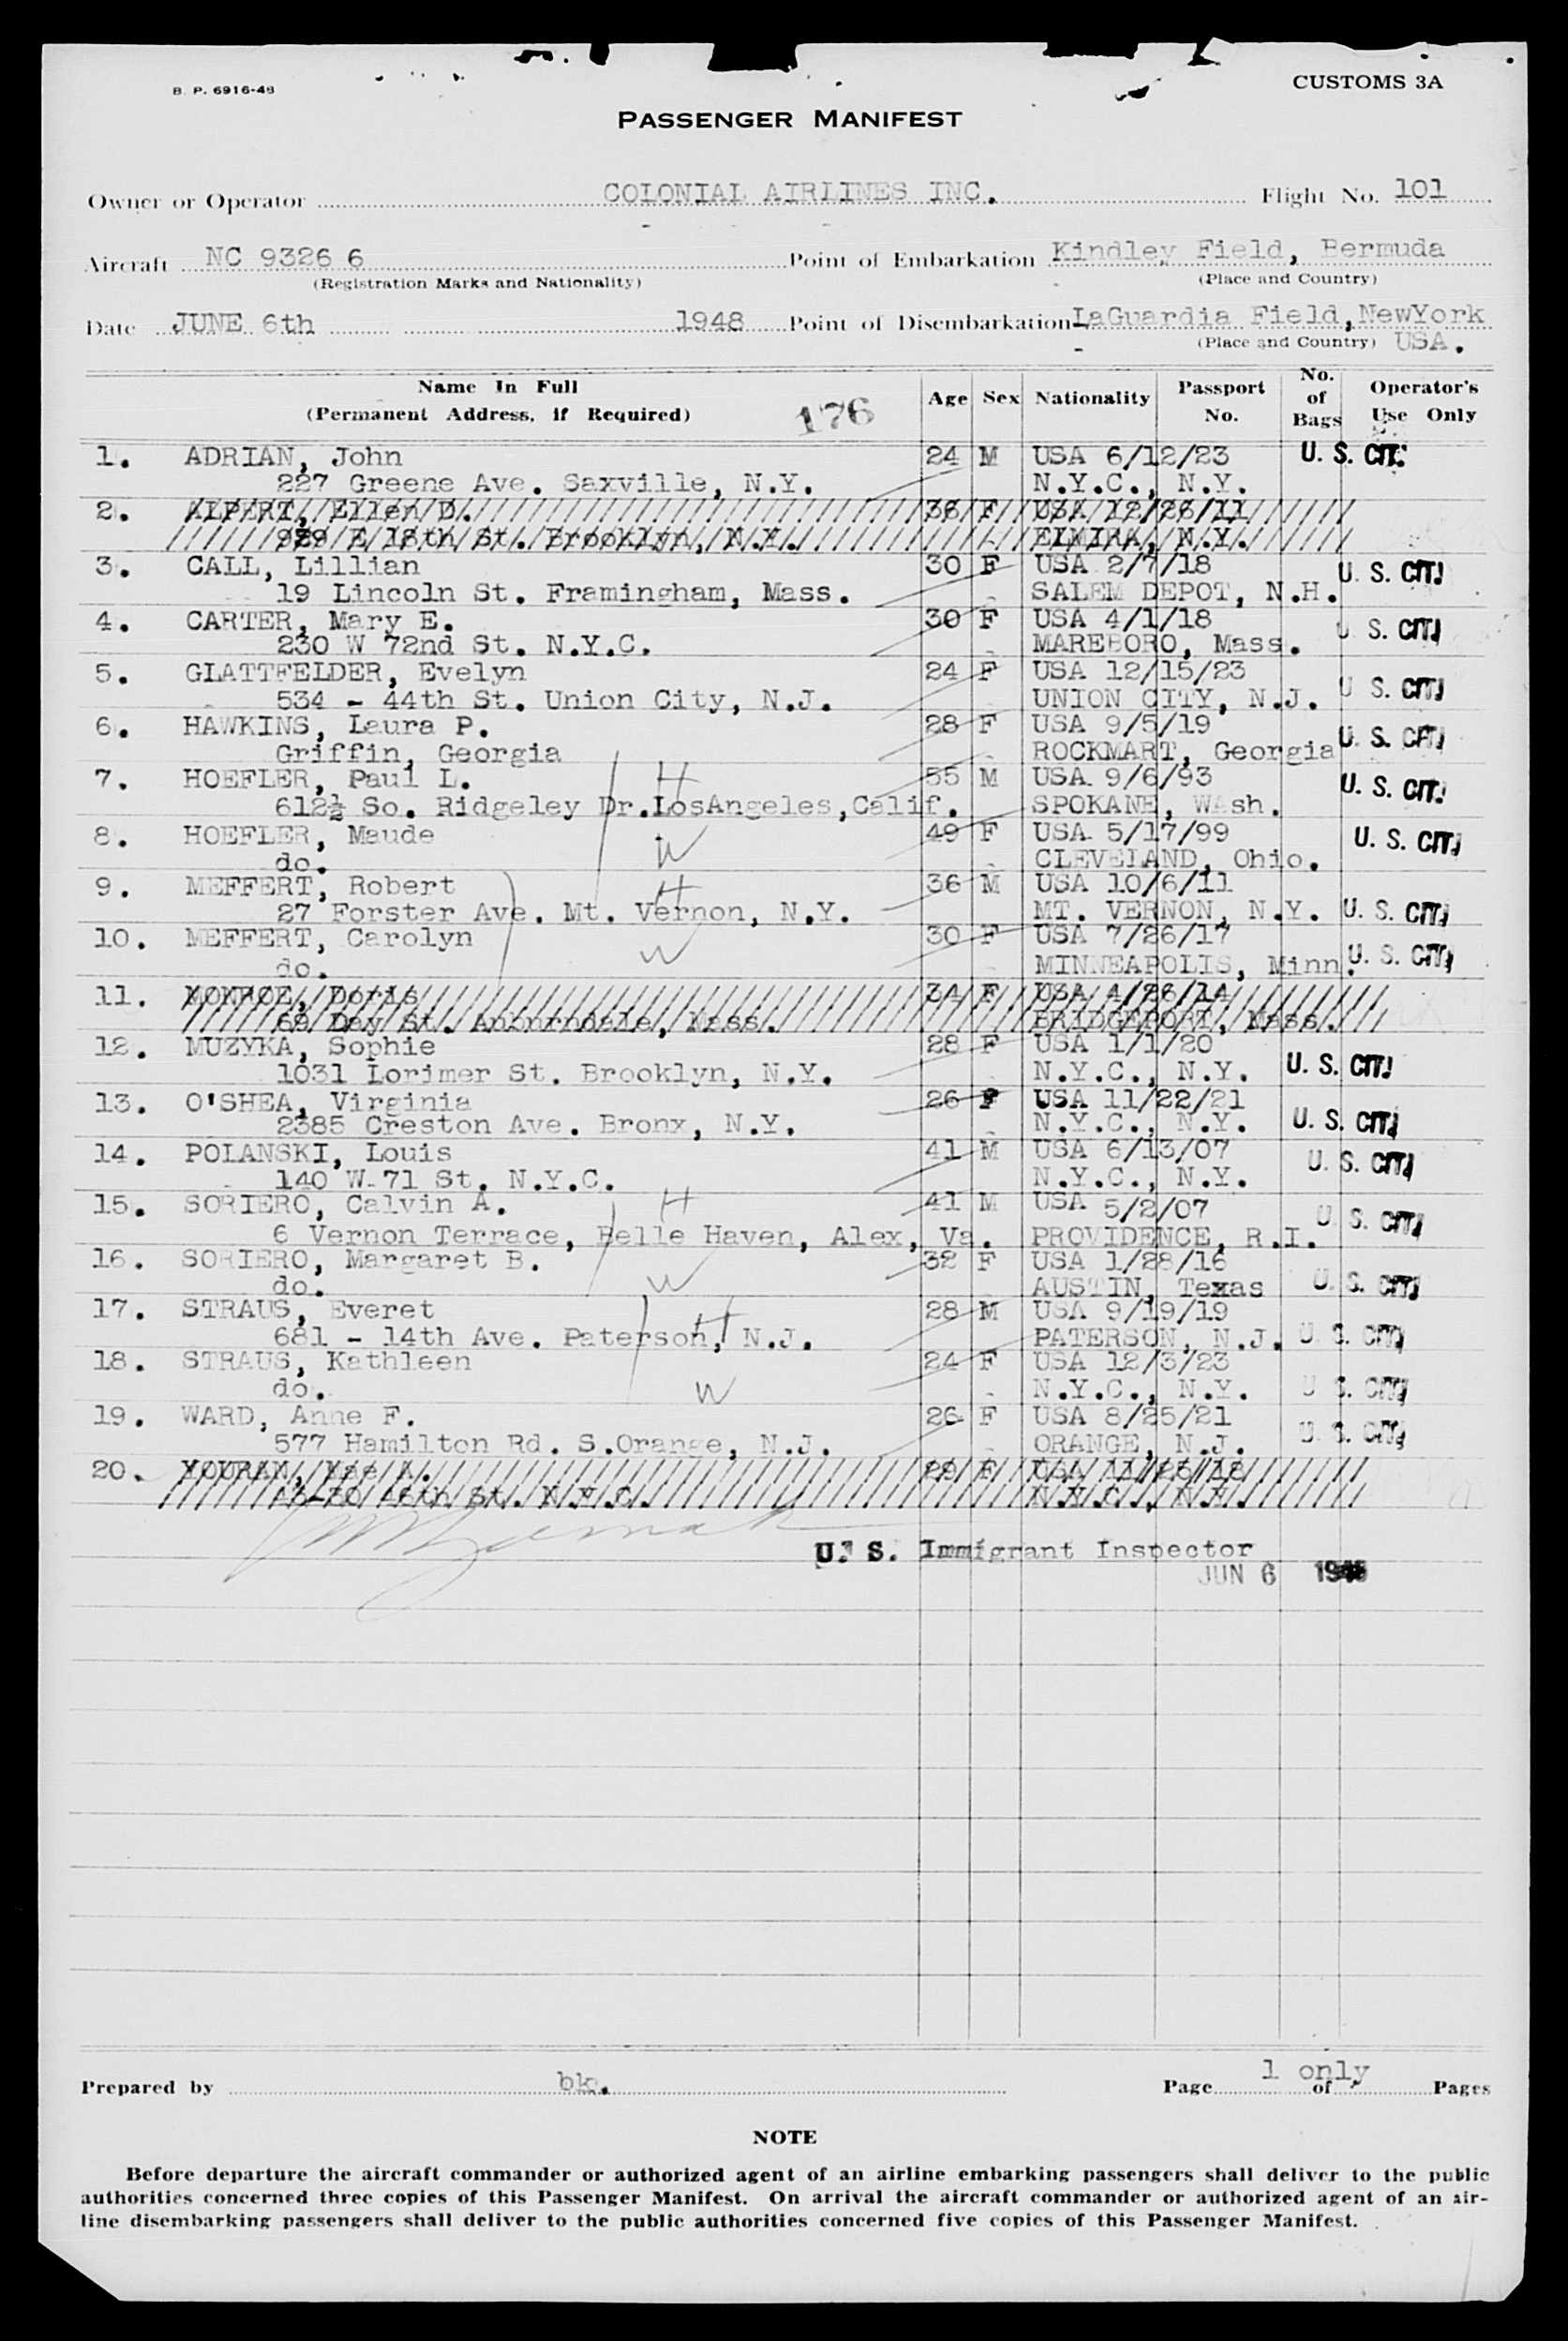 B. P. 6916-48
CUSTOMS 3A
PASSENGER MANIFEST
Owner or Operator COLONIAL AIRLINES INC. Flight No. 101
Aircraft NC 9326 6 Point of Embarkation Kindley Field, Bermuda
(Registration Marks and Nationality) (Place and Country)
Date JUNE 6th 1948 Point of Disembarkation LaGuardia Field, NewYork
(Place and Country) USA.
Name In Full Age Sex Nationality Passport No. No. of Bags Operator's Use Only
(Permanent Address, if Required) 176
1. ADRIAN, John 24 M USA 6/12/23 U. S. CIT.
227 Greene Ave. Saxville, N.Y. N.Y.C., N.Y.
2. ALPERT, Ellen D. 36 F USA 12/26/11
929 E 18th St. Brooklyn, N.Y. ELMIRA, N.Y.
3. CALL, Lillian 30 F USA 2/7/18 U. S. CIT.
19 Lincoln St. Framingham, Mass. SALEM DEPOT, N.H.
4. CARTER, Mary E. 30 F USA 4/1/18 U. S. CIT.
230 W 72nd St. N.Y.C. MAREBORO, Mass.
5. GLATTFELDER, Evelyn 24 F USA 12/15/23 U. S. CIT.
534 - 44th St. Union City, N.J. UNION CITY, N.J.
6. HAWKINS, Laura P. 28 F USA 9/5/19 U. S. CIT.
Griffin, Georgia ROCKMART, Georgia
7. HOEFLER, Paul L. H 55 M USA 9/6/93 U. S. CIT.
612½ So. Ridgeley Dr.LosAngeles,Calif. SPOKANE, Wash.
8. HOEFLER, Maude W 49 F USA 5/17/99 U. S. CIT.
do. CLEVELAND, Ohio.
9. MEFFERT, Robert H 36 M USA 10/6/11
27 Forster Ave. Mt. Vernon, N.Y. MT. VERNON, N.Y. U. S. CIT.
10. MEFFERT, Carolyn W 30 F USA 7/26/17 U. S. CIT.
do. MINNEAPOLIS, Minn.
11. MONROE, Doris 34 F USA 4/26/14
69 Day St. Auburndale, Mass. BRIDGEPORT, Mass.
12. MUZYKA, Sophie 28 F USA 1/1/20 U. S. CIT.
1031 Lorimer St. Brooklyn, N.Y. N.Y.C., N.Y.
13. O'SHEA, Virginia 26 F USA 11/22/21 U. S. CIT.
2385 Creston Ave. Bronx, N.Y. N.Y.C., N.Y.
14. POLANSKI, Louis 41 M USA 6/13/07 U. S. CIT.
140 W 71 St. N.Y.C. N.Y.C., N.Y.
15. SORIERO, Calvin A. H 41 M USA 5/2/07 U. S. CIT.
6 Vernon Terrace, Belle Haven, Alex, Va. PROVIDENCE, R.I.
16. SORIERO, Margaret B. W 32 F USA 1/28/16 U. S. CIT.
do. AUSTIN, Texas
17. STRAUS, Everet H 28 M USA 9/19/19 U. S. CIT.
681 - 14th Ave. Paterson, N.J. PATERSON, N.J.
18. STRAUS, Kathleen W 24 F USA 12/3/23 U. S. CIT.
do. N.Y.C., N.Y.
19. WARD, Anne F. 26 F USA 8/25/21 U. S. CIT.
577 Hamilton Rd. S.Orange, N.J. ORANGE, N.J.
20. YOURAN, Mae A. 29 F USA
46th St. N.Y.C. N.Y.C., N.Y.
U. S. Immigrant Inspector
JUN 6 1948
Prepared by bk. Page 1 only of Pages
NOTE
Before departure the aircraft commander or authorized agent of an airline embarking passengers shall deliver to the public
authorities concerned three copies of this Passenger Manifest. On arrival the aircraft commander or authorized agent of an air-
line disembarking passengers shall deliver to the public authorities concerned five copies of this Passenger Manifest.